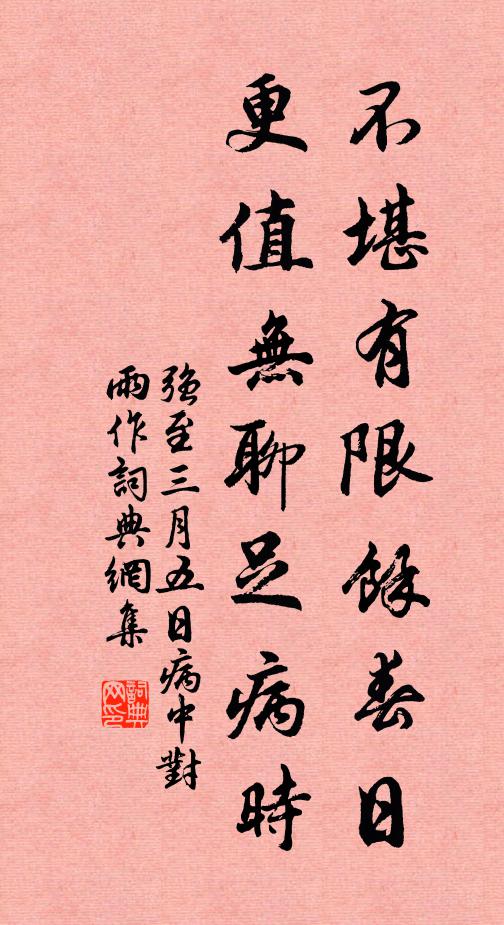 不堪有限餘春日
更值無聊足病時
強至三月五日病中對
雨作詞典網集
詞典
网印